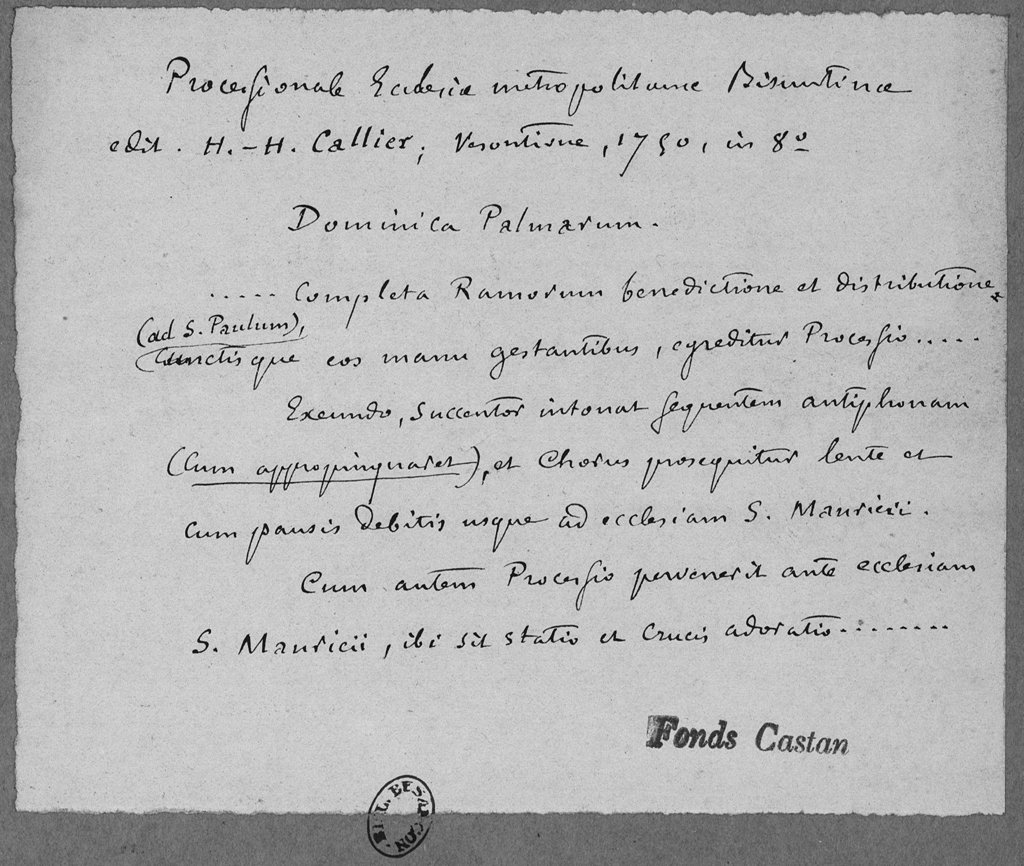 Processionale Ecclesiæ metropolitanæ Bisuntinæ
edit. H.-H. Callier; Vesontione, 1750, in 8º
Dominica Palmarum.
..... Completa Ramorum benedictione et distributione
(ad S. Paulum),
Cunctisque eos manu gestantibus, egreditur Processio.....
Exeundo, succentor intonat sequentem antiphonam
(Cum appropinquaret), et Chorus prosequitur lente et
cum pausis debitis usque ad ecclesiam S. Mauricii.
Cum autem Processio pervenerit ante ecclesiam
S. Mauricii, ibi sit statio et crucis adoratio........
Fonds Castan
BIBL. BESANCON